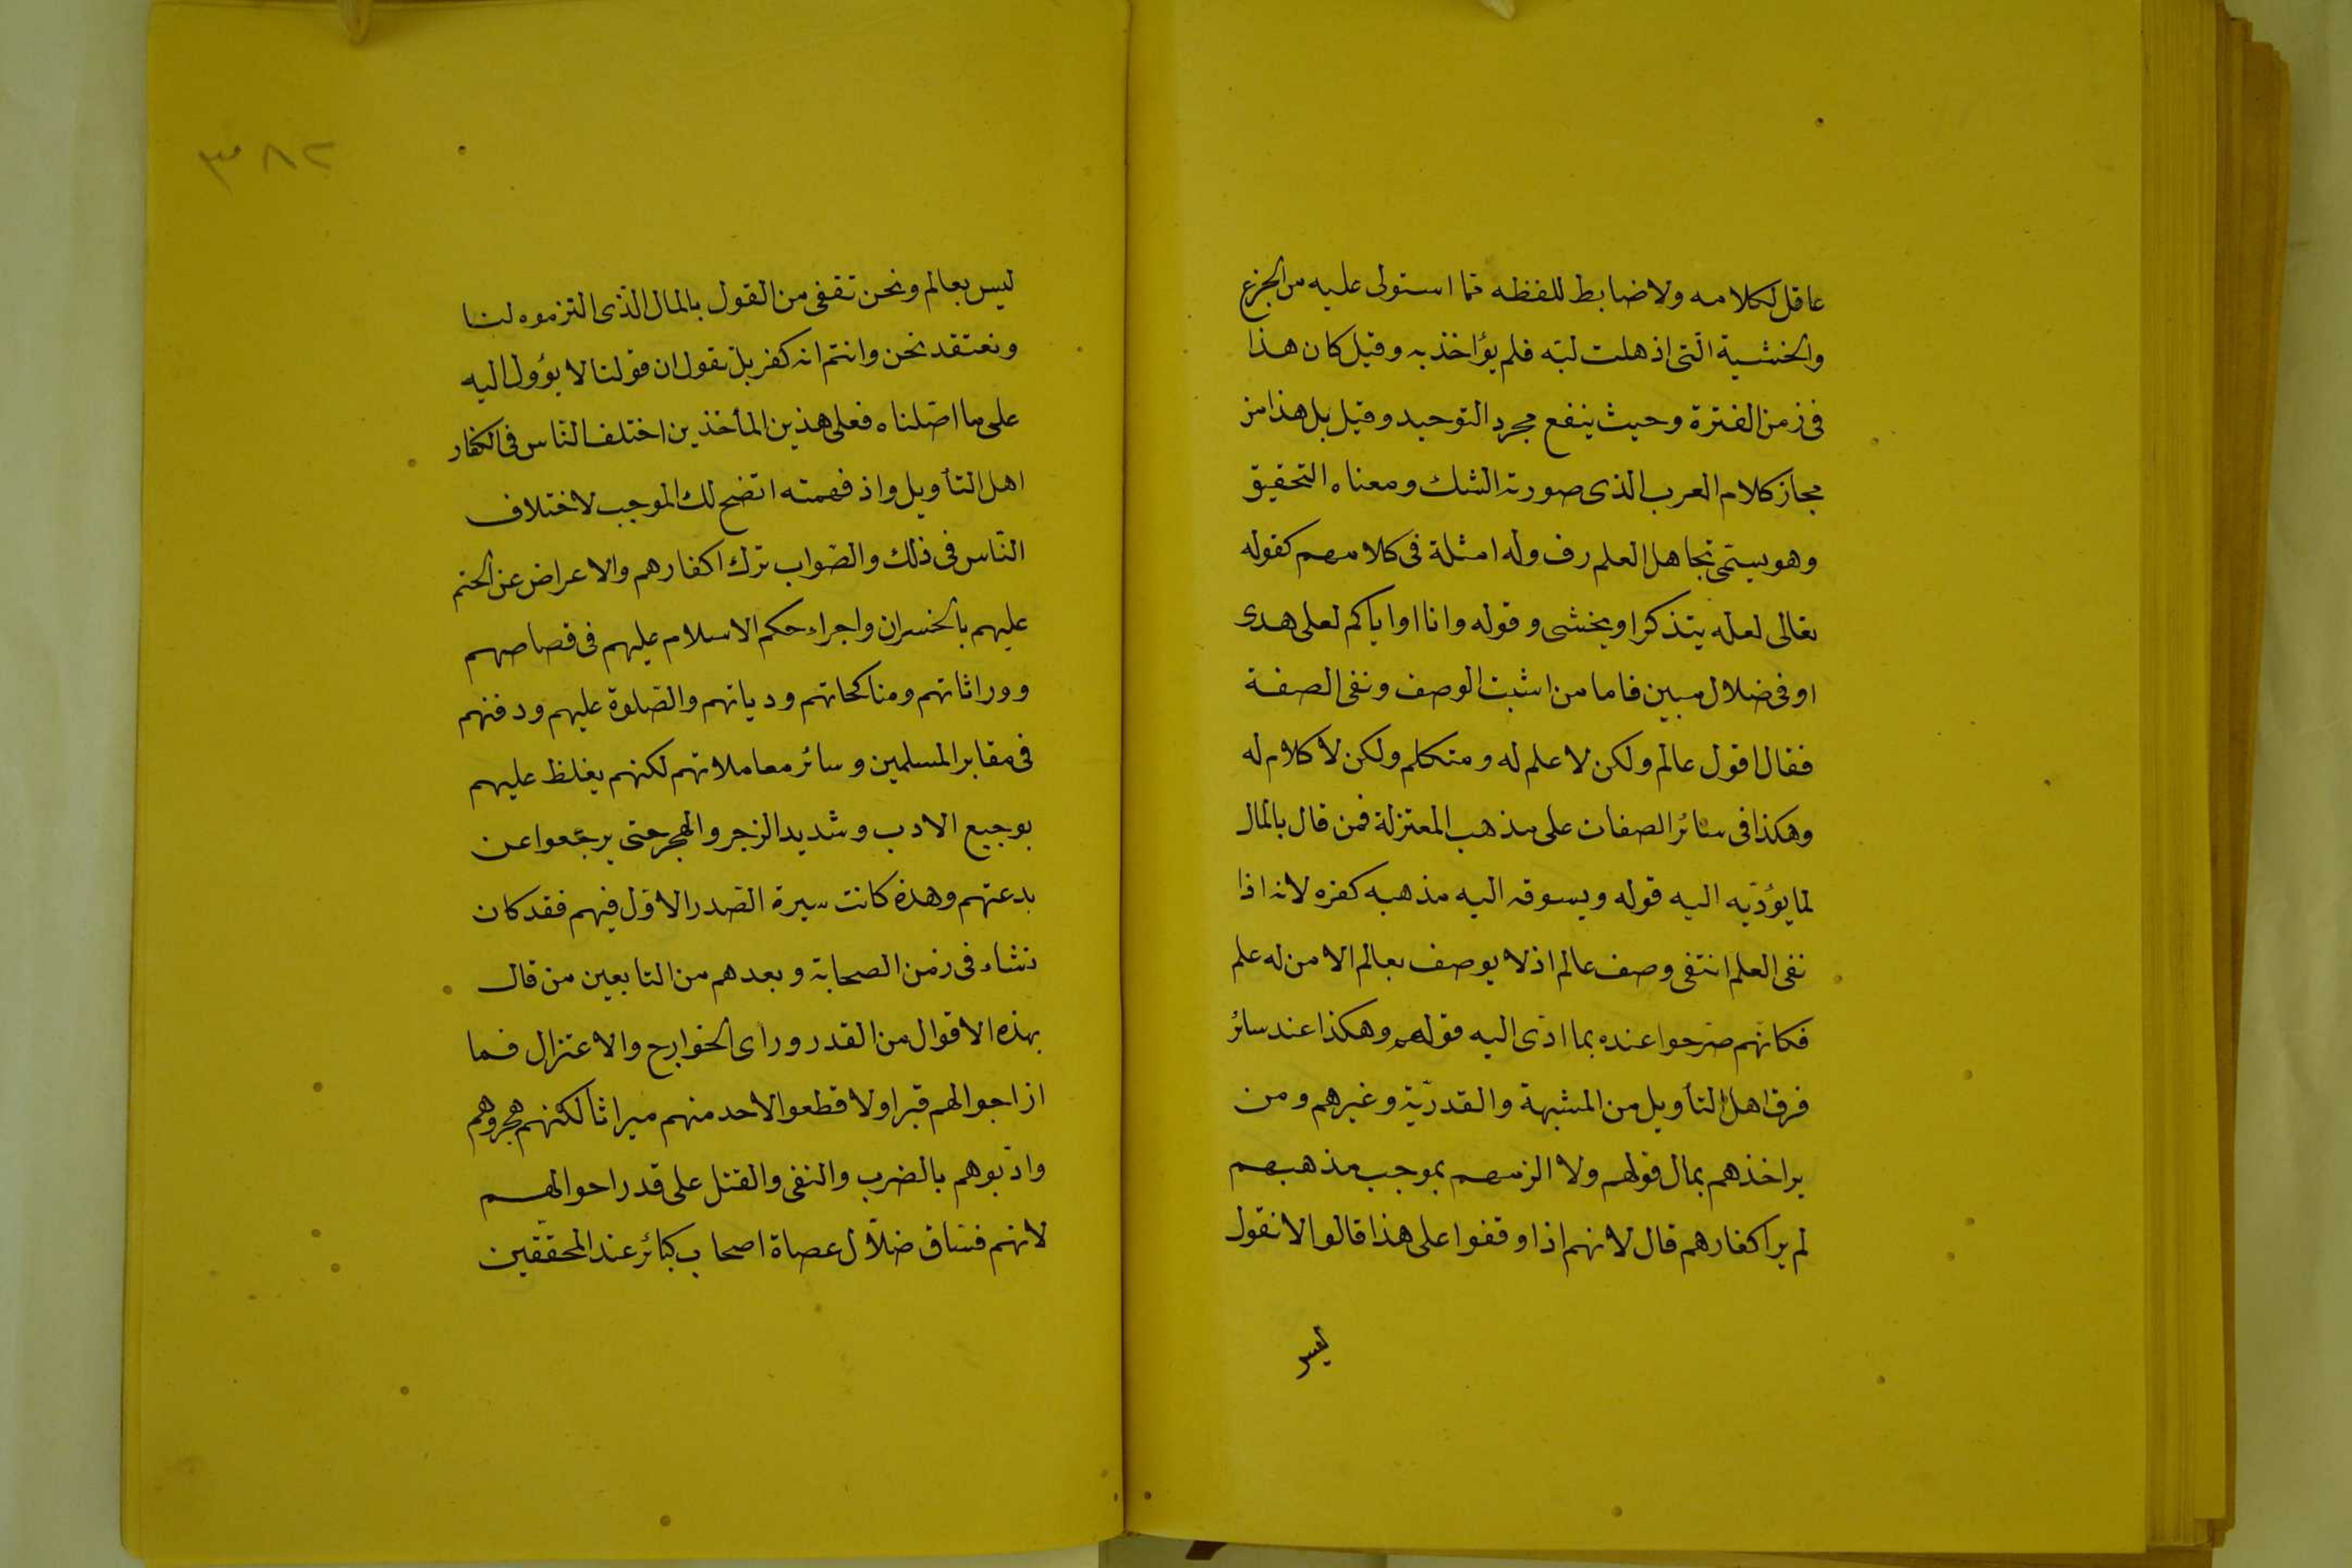 عاقل لكلامه ولا ضابط للفظه مما استولى عليه من الجزع
والخشية التى اذهلت لبّه فلم يؤاخذ به وقيل كان هذا
فى زمن الفترة وحيث ينفع مجرد التوحيد وقيل بل هذا من
مجاز كلام العرب الذى صورته الشك ومعناه التحقيق
وهو يسمّى تجاهل العلم رف وله امثلة فى كلامهم كقوله
تعالى لعله يتذكر او يخشى وقوله وانا او اياكم لعلى هدى
او فى ضلال مبين فاما من اثبت الوصف ونفى الصفة
فقال اقول عالم ولكن لا علم له ومتكلم ولكن لا كلام له
وهكذا فى سائر الصفات على مذهب المعتزلة فمن قال بالمال
لما يؤدّيه اليه قوله ويسوقه اليه مذهبه كفره لانه اذا
نفى العلم انتفى وصف عالم اذ لا يوصف بعالم الا من له علم
فكانّهم صرّحوا عنده بما ادّى اليه قولهم وهكذا عند سائر
فرق اهل التأويل من المشبهة والقدريّة وغيرهم ومن
ير اخذهم بمال قولهم ولا الزمهم بموجب مذهبهم
لم ير اكفارهم قال لانهم اذا وقفوا على هذا قالوا لا نقول
ليس
٣٨٢
ليس بعالم ونحن نتفى من القول بالمال الّذى التزموه لنا
ونعتقد نحن وانتم انه كفر بل نقول ان قولنا لا يؤول اليه
على ما اصّلناه فعلى هذين المأخذين اختلف النّاس فى اكفار
اهل التأويل واذ فهمته اتضح لك الموجب لاختلاف
النّاس فى ذلك والصّواب ترك اكفارهم والاعراض عن الحتم
عليهم بالخسران واجراء حكم الاسلام عليهم فى قصاصهم
ووراثاتهم ومناكحاتهم ودياتهم والصّلوة عليهم ودفنهم
فى مقابر المسلمين وسائر معاملاتهم لكنهم يغلظ عليهم
بوجيع الادب وشديد الزجر والهجر حتى يرجعوا عن
بدعتهم وهذه كانت سيرة الصّدر الاوّل فيهم فقد كان
نشاء فى زمن الصحابة وبعدهم من التابعين من قال
بهذه الاقوال من القدر ورأى الخوارج والاعتزال فما
ازاحوا لهم قبرا ولا قطعوا لاحد منهم ميراثا لكنهم هجروهم
وادّبوهم بالضرب والنفى والقتل على قدر احوالهم
لانهم فسّاق ضلّال عصاة اصحاب كبائر عند المحقّقين